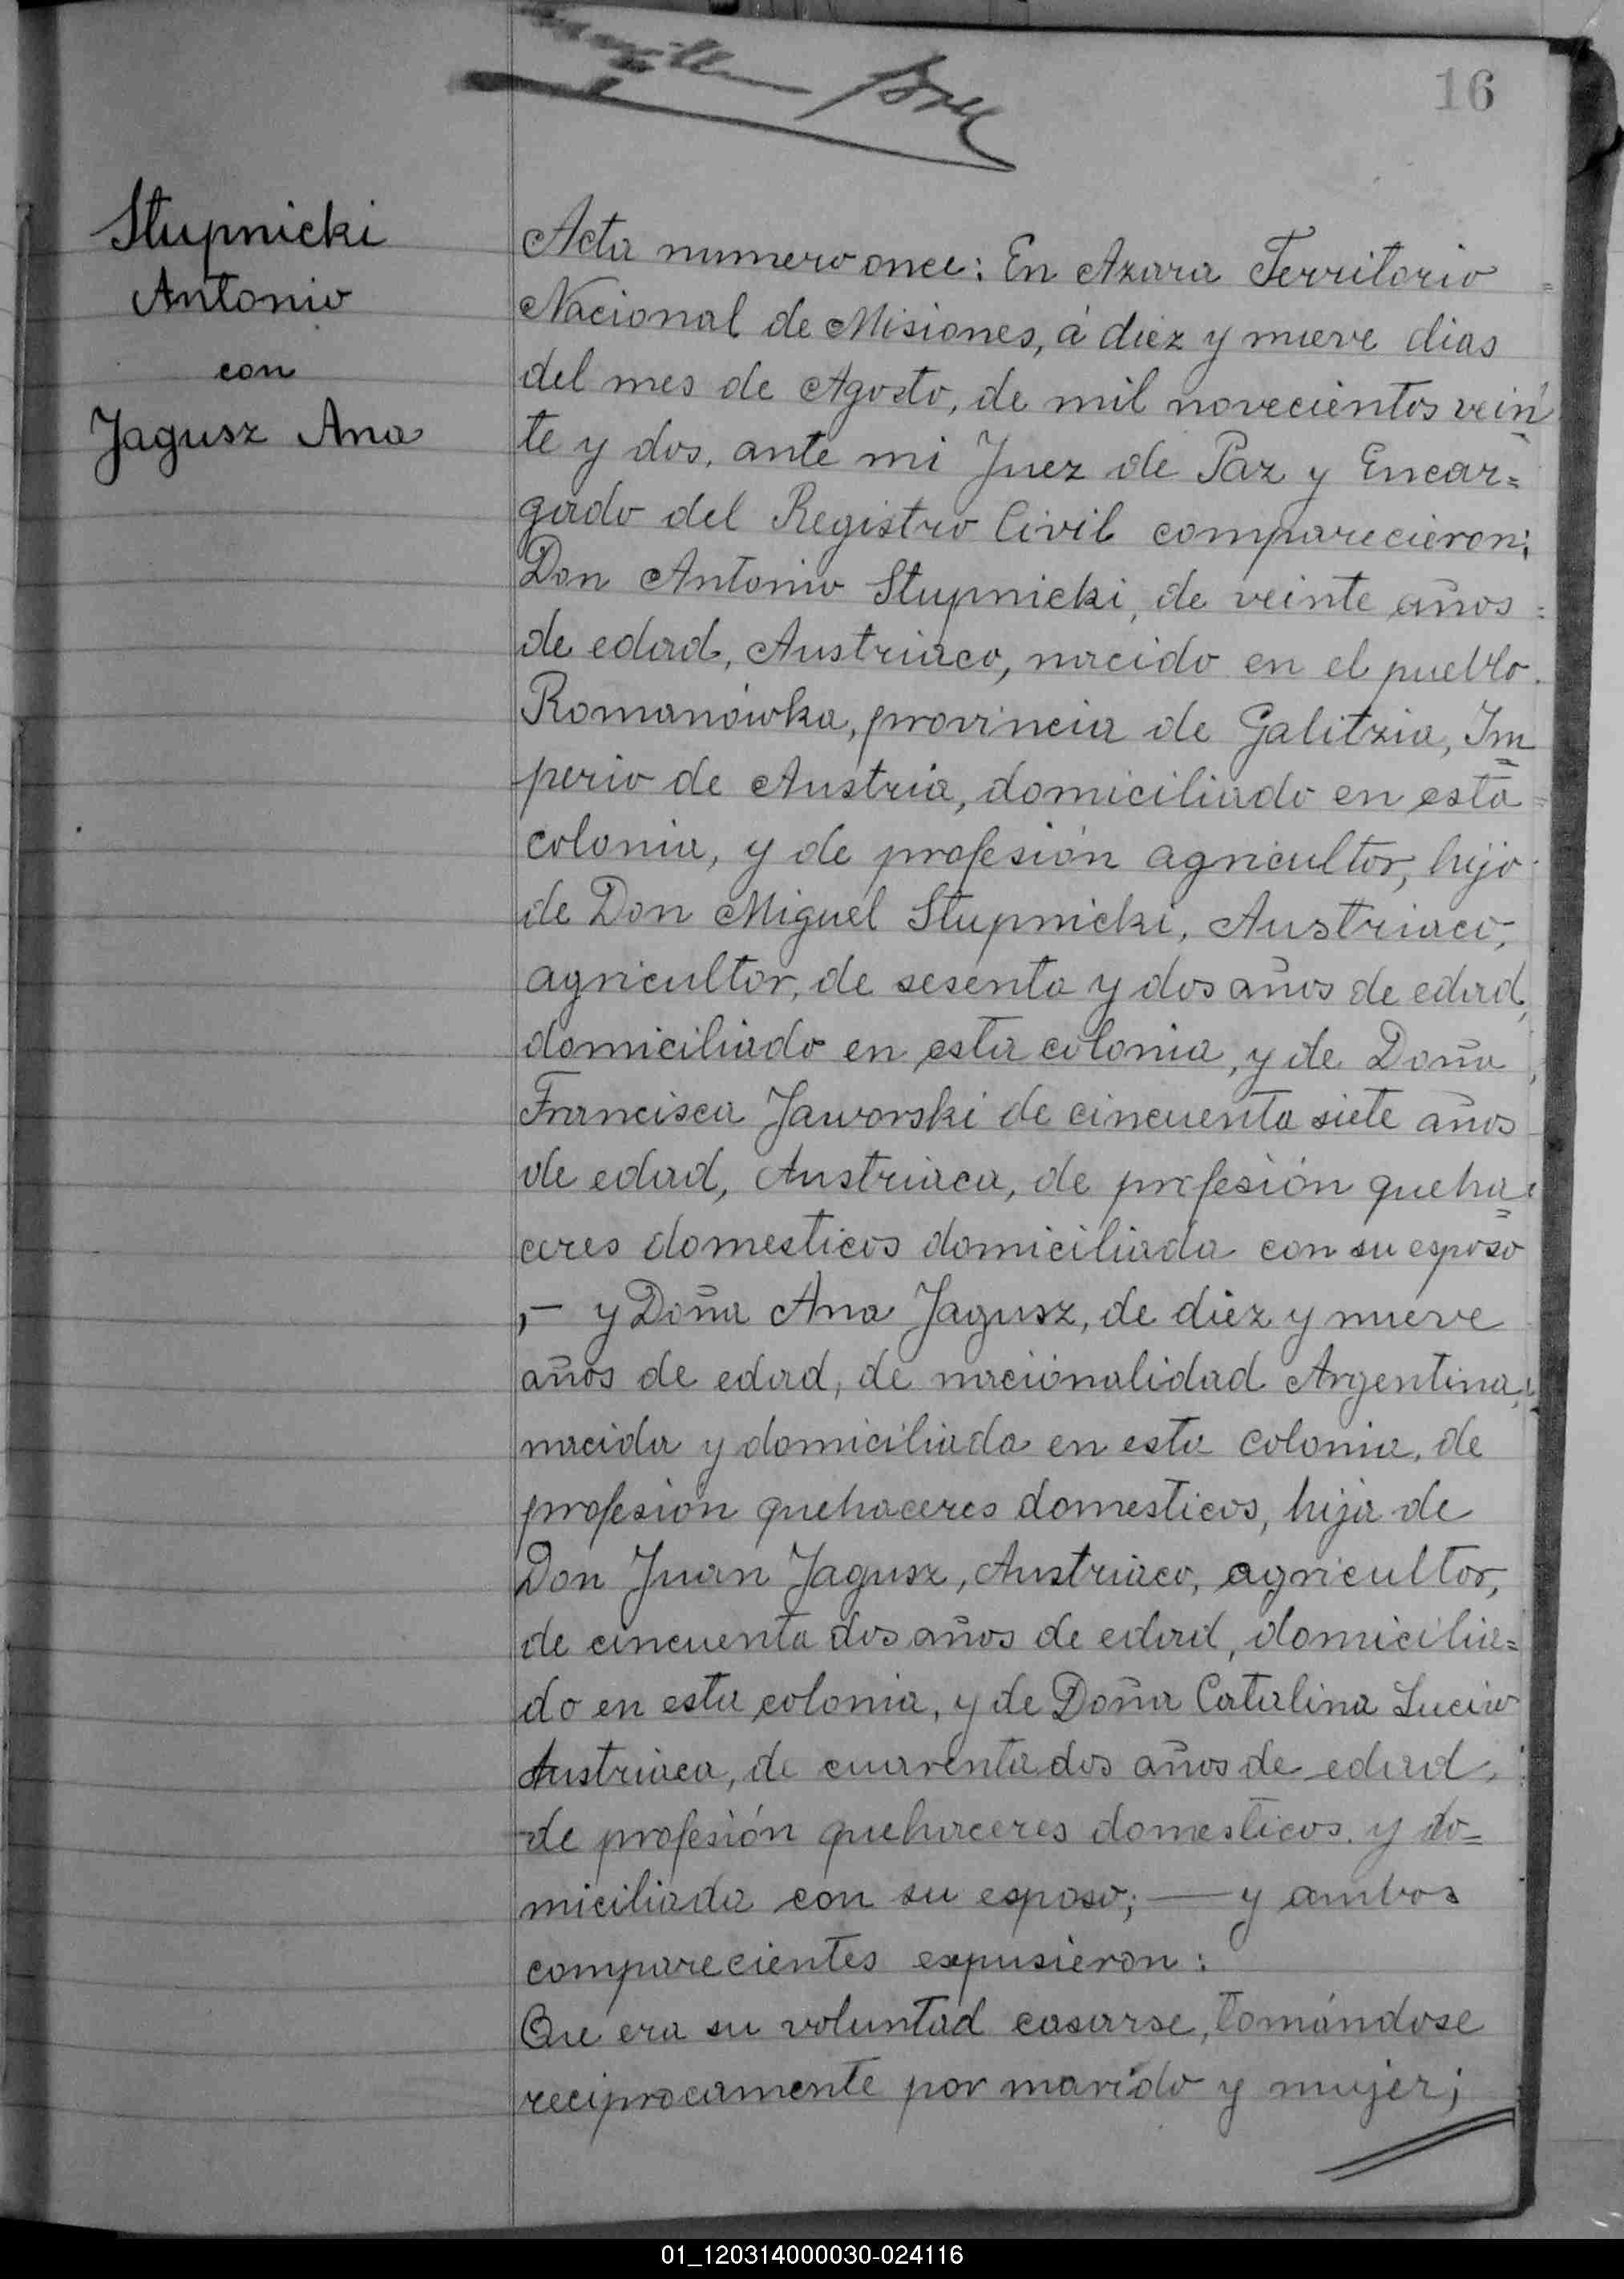 16
Stupnicki
Antonio
con
Jagusz Ana
Acta numero once: En Azara Territorio =
Nacional de Misiones, á diez y nueve dias
del mes de Agosto, de mil novecientos vein
te y dos, ante mi Juez de Paz y Encar=
gado del Registro Civil comparecieron;
Don Antonio Stupnicki, de veinte años =
de edad, Austriaco, nacido en el pueblo
Romanówka, provincia de Galitzia, Im
perio de Austria, domiciliado en esta =
colonia, y de profesión agricultor, hijo
de Don Miguel Stupnicki, Austriaco,
agricultor, de sesenta y dos años de edad,
domiciliado en esta colonia, y de Doña
Francisca Jaworski de cincuenta siete años
de edad, Austriaca, de profesión queha
ceres domesticos domiciliada con su esposo
,— y Doña Ana Jagusz, de diez y nueve
años de edad, de nacionalidad Argentina,
nacida y domiciliada en esta colonia, de
profesion quehaceres domesticos, hija de
Don Juan Jagusz, Austriaco, agricultor,
de cincuenta dos años de edad, domicilia=
do en esta colonia, y de Doña Catalina Luciw
Austriaca, de cuarenta dos años de edad,
de profesión quehaceres domesticos y do=
miciliada con su esposo; — y ambos
comparecientes expusieron:
Que era su voluntad casarse, tomándose
reciprocamente por marido y mujer;
01_120314000030-024116